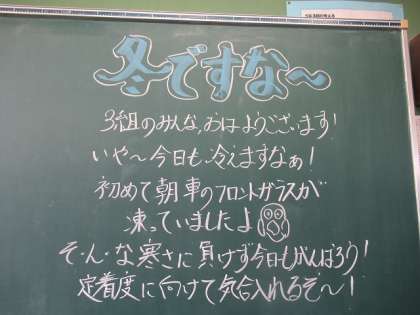 冬ですな〜
3組のみんな、おはようございます!
いや〜今日も冷えますなぁ!
初めて朝車のフロントガラスが
凍っていましたよ
そ・ん・な寒さに負けず今日もがんばろう!
定着度に向けて気合入れるぞ〜!